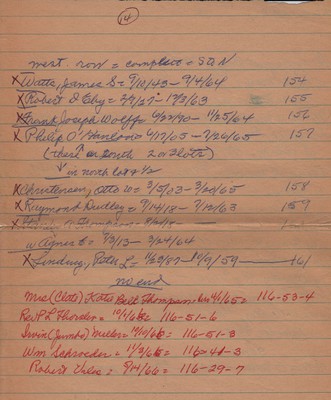 14
next row = complete = S to N
X Watts, James S = 9/10/43 - 9/4/64 154
X Robert D Eby = 2/2/27 - 12/3/63 155
X Frank Joseph Wolff = 6/23/90 - 11/25/64 156
X Philip O'Hanlon = 4/17/05 - 7/26/65 157
(these on south 2 of 3 lots)
on north lot
X Christensen, Otto W = 3/5/03 - 3/20/65 158
X Raymond Dudley = 7/14/18 - 7/12/63 159
w Agnes E = 7/3/13 - 3/24/64
X Lindsey, Peter L = 11/29/87 - 10/9/59 161
no end
Mrs (Clate) Kate Bell Thompson, 1965 = 116-53-4
Rev P L Thorder = 10/1/66 = 116-51-6
Irvin (Jumbo) Miller = 10/10/66 = 116-51-3
Wm Schroeder = 11/3/66 = 116-41-3
Robert Vales = 9/14/66 = 116-29-7